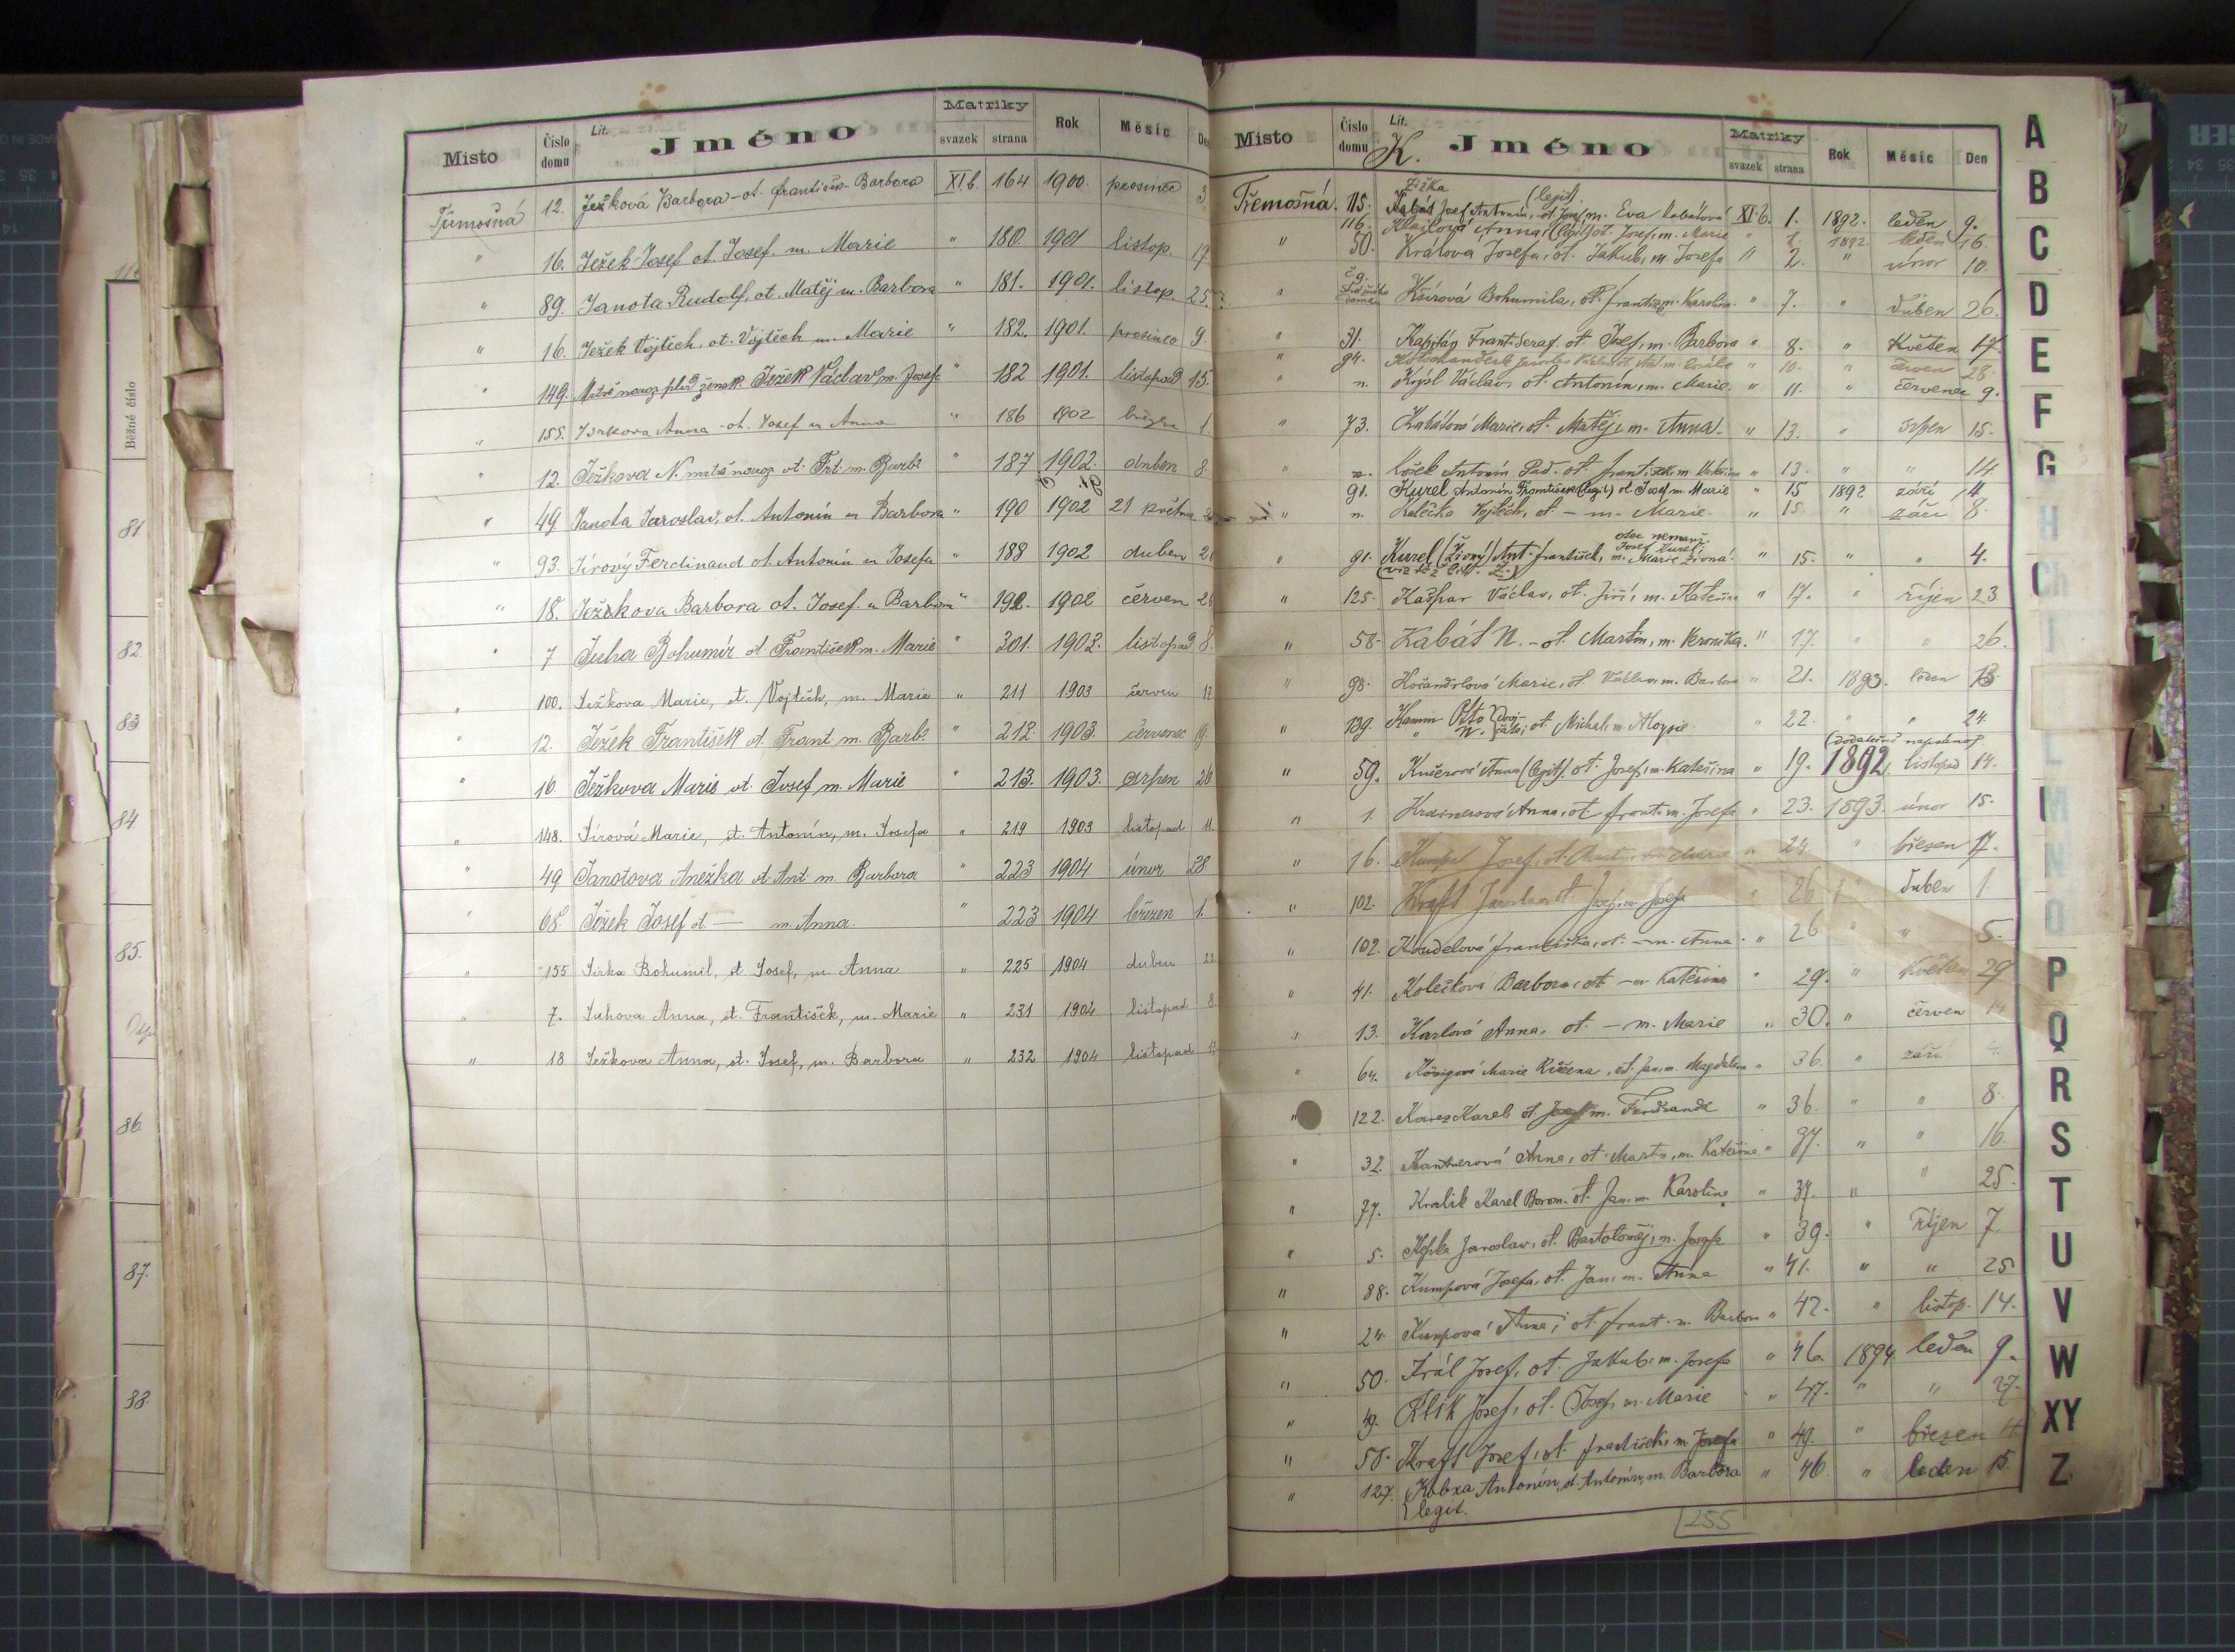 Běžné číslo
81
82.
83
84.
85.
86.
87.
88.
Místo Číslo domu Lit. Jméno Matriky svazek strana Rok Měsíc Den
Třemošná 12. Ježková Barbora - ot. František - Barbora XI b. 164 1900. prosinec 3.
" 16. Ježek Josef ot. Josef. m. Marie " 180. 1901 listop. 17
" 89. Janota Rudolf, ot. Matěj m. Barbora " 181. 1901. listop. 25.
" 16. Ježek Vojtěch, ot. Vojtěch m. Marie " 182. 1901. prosinec 9.
" 149. Ježek Václav m. Josefa " 182 1901. listopad 15.
" 155. Jirkova Anna - ot. Josef m Anna " 186 1902 března 1
" 12. Ježkova N. ot. Frt. m. Barb. " 187 1902. duben 8.
" 49. Janota Jaroslav, ot. Antonín m Barbora " 190 1902 21 května
" 93. Jírový Ferdinand ot. Antonín m Josefa " 188 1902 duben
" 18. Ježkova Barbora ot. Josef. m Barbora " 192. 1902 červen
" 7 Juha Bohumír ot František m. Marie " 201. 1902. listopad 8.
" 100. Ježkova Marie, ot. Vojtěch, m. Marie " 211 1903 červen
" 12. Ježek František ot. Frant m. Barb. " 212 1903. červenec 19.
" 16 Ježkova Marie ot. Josef m. Marie " 213. 1903. srpen 26
" 148. Jírová Marie, ot. Antonín, m. Josefa " 219 1903 listopad 11.
" 49 Janotova Anežka ot. Ant. m Barbora " 223 1904 únor 28.
" 68 Ježek Josef ot. — m. Anna. " 223 1904. březen 1.
" 155 Jirka Bohumil, ot Josef, m. Anna " 225 1904 duben
" 7. Juhova Anna, ot. František, m. Marie " 231 1904 listopad 8
" 18 Ježkova Anna, ot. Josef, m. Barbora " 232 1904 listopad
Místo Číslo domu Lit. K. Jméno Matriky svazek strana Rok Měsíc Den
Žižka (legit).
Třemošná. 115. Josef Antonín, ot. Josef, m. Eva XI. b. 1. 1892. leden 9.
116. Anna, (legit) ot. Josef, m. Marie " 1892 leden 16.
" 50. Králová Josefa, ot. Jakub, m. Josefa " 2. " únor 10.
" Bohumila, ot. františ. m. Karolina. " 7. " duben 26.
" 31. Frant. Seraf. ot. Josef, m. Barbora " 8. " Květen 17.
" 94. " 10. " červen 28.
" n. Krýsl Václav, ot. Antonín, m. Marie. " 11. " červenec 9.
" 73. Kabátová Marie, ot. Matěj, m. Anna. " 13. " srpen 15.
" n. Antonín Pad. ot. frantisek, m " 13. " " 14
91. Kurel Antonín František (legit) ot. Josef m Marie " 15 1892 září 4.
" n. Kolečko Vojtěch, ot. — m. Marie. " 15 " září 8.
otec nemanž. Josef Kurel,
" 91. Kurel (Živný) Ant. františek, m. Marie Živná. " 15. " " 4.
(viz též lit. Ž.)
" 125. Kašpar Václav, ot. Jiří, m. Kateřina " 17. " říjen 23
" 58. Kabát N. - ot. Martin, m. Veronika. " 17. " " 26.
" 98. Kočandrlová Marie, ot. Václav, m. Barbora " 21. 1893. leden 13.
" 139. Kamm Otto, N. dvojčata, ot Michal, m. Aloysie " 22. " " 24.
(dodatečně napsáno)
" 59. Kučerová Anna (legit). ot. Josef, m. Kateřina " 19. 1892. listopad 14.
" 1. Krainerová Anna, ot frant. m. Josefa " 23. 1893. únor 15.
" 16. Kumpf Josef, ot. m. Marie " 24 " březen 17.
" 102. Kraft Jaroslav ot. Josef, m. Josefa " 26 " duben 1.
" 102. Koudelová františka, ot. — m. Anna. " 26 " " 5.
" 41. Kolečkova Barbora, ot. — m Kateřina " 29. " Květen 29
" 13. Karlová Anna, ot. — m. Marie " 30. " červen
" 64. Marie Růžena, ot. Jan, m. Magdalena " 36. " září 4.
" 122. Karel ot. Josef m. " 36 " " 8.
" 32. Kantnerová Anna, ot. Martin, m. Kateřina " 37. " " 16.
" 77. Kralik Karel Borom. ot. Jan, m. Karolina " 37. " " 25.
" 5. Kepka Jaroslav, ot. Bartoloměj, m. Josefa " 39. " říjen 7.
" 88. Kumpová Josefa, ot. Jan, m. Anna " 41. " " 25
" 24. Kumpová Anna, ot. frant. m. Barbora " 42. " listop. 14.
" 50. Král Josef, ot. Jakub, m. Josefa " 46. 1894. leden 9.
" 49. Klik Josef, ot. Josef, m. Marie " 47. " " 27.
" 58. Kraft Josef, ot. františek, m Josefa " 49. " březen
" 127. Kobza Antonín, ot. Antonín, m. Barbora " 46. " leden 15.
legit.
255
A
B
C
D
E
F
G
H
Ch
I
L
M
N
O
P
Q
R
S
T
U
V
W
XY
Z